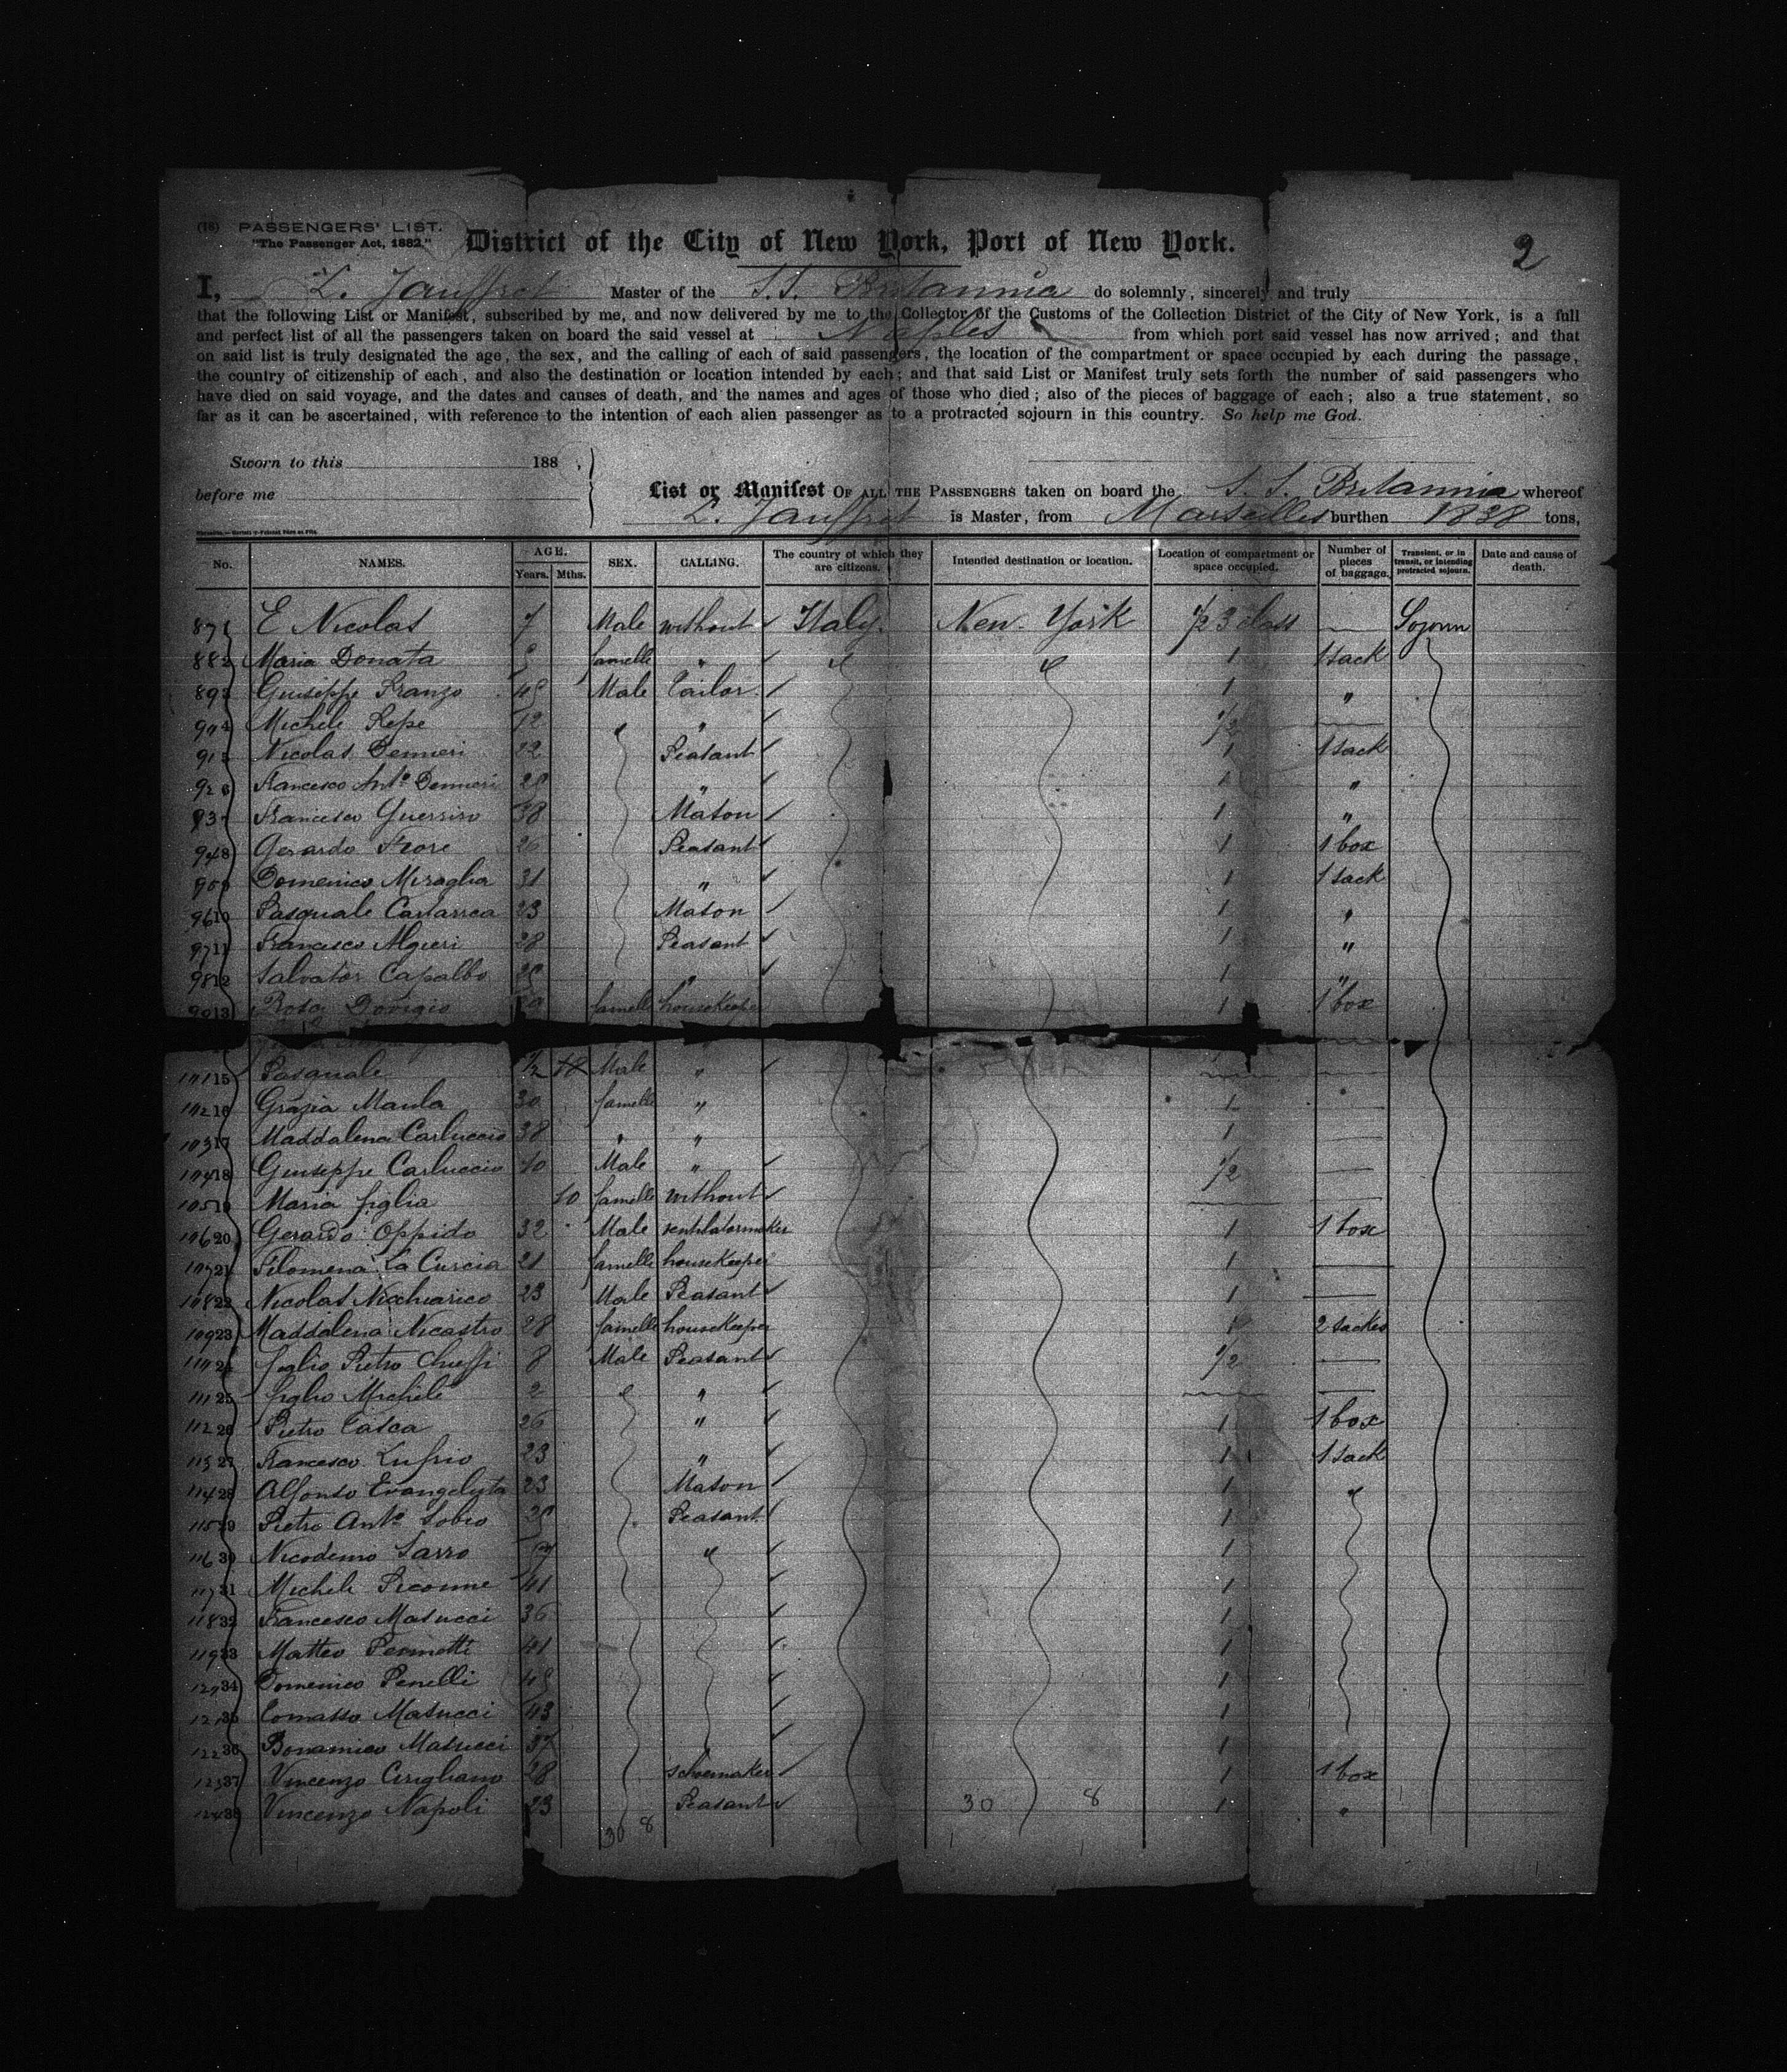 (16) PASSENGERS' LIST.
"The Passenger Act, 1882."
District of the City of New York, Port of New York.
2
I, L. Jauffret Master of the S.S. Britannia do solemnly, sincerely and truly
that the following List or Manifest, subscribed by me, and now delivered by me to the Collector of the Customs of the Collection District of the City of New York, is a full
and perfect list of all the passengers taken on board the said vessel at Naples from which port said vessel has now arrived; and that
on said list is truly designated the age, the sex, and the calling of each of said passengers, the location of the compartment or space occupied by each during the passage,
the country of citizenship of each, and also the destination or location intended by each; and that said List or Manifest truly sets forth the number of said passengers who
have died on said voyage, and the dates and causes of death, and the names and ages of those who died; also of the pieces of baggage of each; also a true statement, so
far as it can be ascertained, with reference to the intention of each alien passenger as to a protracted sojourn in this country. So help me God.
Sworn to this 188 ,
before me
List or Manifest OF ALL THE PASSENGERS taken on board the S. S. Britannia whereof
L. Jauffret is Master, from Marseilles burthen 1838 tons,
No. NAMES. AGE. Years. Mths. SEX. CALLING. The country of which they are citizens. Intended destination or location. Location of compartment or space occupied. Number of pieces of baggage. Transient, or in transit, or intending protracted sojourn. Date and cause of death.
87 1 E Nicolas 7 Male without Italy New York 1/2 3 class — Sojourn
88 2 Maria Donata famelle " 1 1 sack
89 3 Giuseppe Franzo Male Tailor 1 "
90 4 Michele Pepe 12 " " 1/2 —
91 5 Nicolas Denneri 22 Peasant 1 1 sack
92 6 Francesco Anto Denneri " 1 "
93 7 Francesco Guerriro 38 Mason 1 "
94 8 Gerardo Fiore 26 Peasant 1 1 box
9 Domenico Miraglia 31 " 1 1 sack
96 10 Pasquale 23 Mason 1 "
97 11 Francesco Algieri 28 Peasant 1 "
98 12 Salvator Capalbo " 1 "
99 13 Rosa famelle housekeeper 1 1 box
101 15 Pasquale 1/2 Male "
102 16 Grazia Manla 30 famelle " 1 —
103 17 Maddalena Carluccio 38 " " 1 —
104 18 Giuseppe Carluccio 10 Male " 1/2 —
105 19 Maria figlia 10 famelle without —
106 20 Gerardo Oppido 32 Male ventilatormaker 1 1 box
107 21 Filomena La Curcia 21 famelle housekeeper 1 —
108 22 Nicolas Nicchiarico 23 Male Peasant 1 —
109 23 Maddalena Nicastro 28 famelle housekeeper 1 2 sackes
110 24 figlio Pietro Chieffi 8 Male Peasant 1/2 —
111 25 figlio Michele 2 " " —
112 26 Pietro Casca 26 " 1 1 box
113 27 Francesco Lufrio 23 " 1 1 sack
114 28 Alfonso Evangelista 23 Mason 1 "
115 29 Pietro Anto Sobio Peasant 1
116 30 Nicodemo Sarro " 1
117 31 Michele Piconne 41 1
118 32 Francesco Masucci 36 1
119 33 Matteo 41 1
120 34 Domenico Penelli 1
121 35 Tomasso Masucci 43 1
122 36 Bonamico Masucci 37 1
123 37 Vincenzo Cirigliano 28 schoemaker 1 1 box
124 38 Vincenzo Napoli 23 Peasant 1 "
30 8 30 8